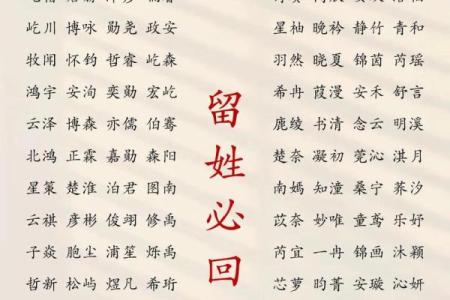 屹川 博咏 勋尧 政安
牧闻 怀钧 哲睿 屹森
鸿宇 安洵 奕勋 宏屹
云泽 博森 亦儒 伯骞
北鸿 正霖 嘉勋 森阳
星策 楚淮 泊君 图南
云祺 彦彬 俊翊 修禹
子焱 胞尘 浦笙 烁禹
哲新 松屿 煜凡 希珩
留姓必回
星袖 晚衿 静竹 青和
羽然 晓夏 锦茵 芮瑶
希冉 葭漫 安禾 舒言
鹿绫 书清 念云 明溪
楚奈 凝初 莞沁 淇月
南嫣 知潼 桑宁 荞汐
苡奈 妙唯 童鸢 乐妤
芮宜 一冉 锦画 沐颖
芯萝 昀菁 安璇 沁妍